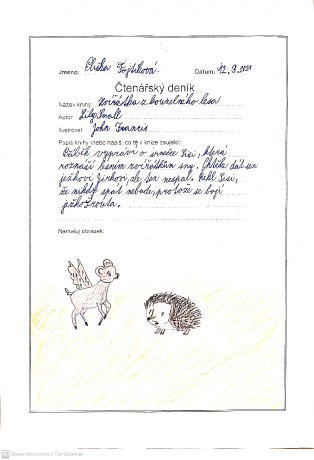 Jméno: Eliška Fojtíková. Datum: 12.9.2021
Čtenářský deník
Název knihy: Zvířátka z kouzelného lesa
Autor: Lily Small
Ilustroval: John Francis
Popis knihy (nebo napiš, co tě v knize zaujalo):
Příběh vypráví o srnečce Sisi, která
roznáší lesním zvířátkům sny. Chtěla dát sen
ježkovi Jirkovi, ale ten nespal. Řekl Sisi,
že nikdy spát nebude, protože se bojí
ježkožrouta.
Namaluj obrázek:
Skenováno pomocí CamScanner